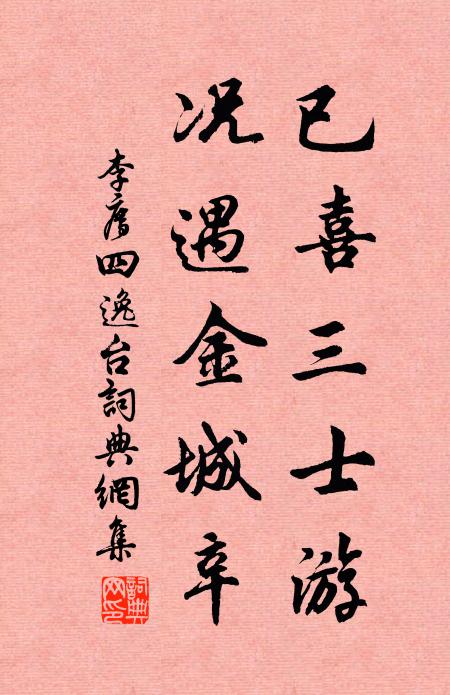 已喜三士游
况遇金城辛
李廌四逸台詞典網集
詞典